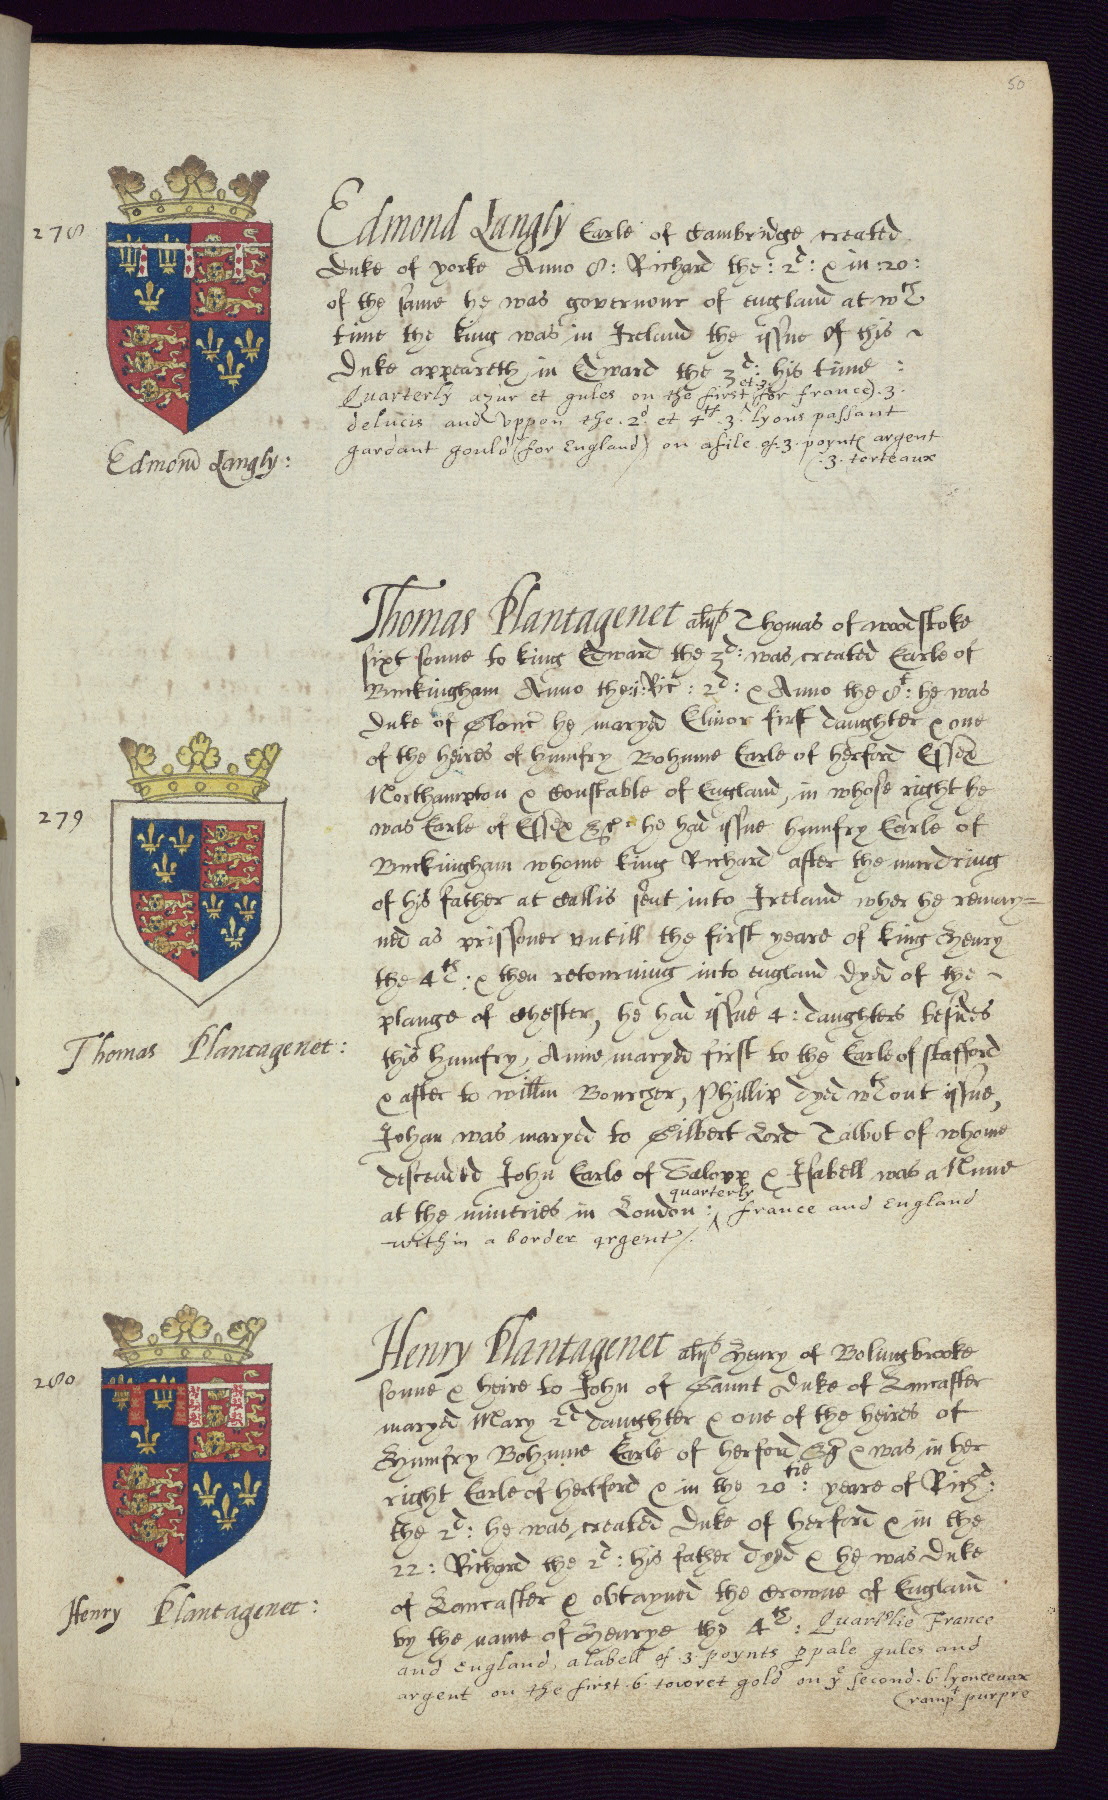 50
278
Edmond Langly Earle of Cambridge created
Duke of yorke Anno 8: Richard the: 2d: & in :20:
of the same he was governour of England at wch
time the king was in Ireland the issue of this ~
Duke appeareth in Edward the 3d: his time :
Quarterly azur et gules on the first et 3 (for france) .3.
delucis and vppon the .2d. et 4th .3. lyons passant
gardant gould (for England) on a file of .3. poynte argent
.3. torteaux
Edmond Langly:
Thomas Plantagenet alius Thomas of woodstoke
sixt sonne to king Edward the 3d: was created Earle of
Buckingham Anno the :1: Ric: 2d: & Anno the 8t: he was
Duke of Glouc he maryed Elinor first daughter & one
of the heires of humfry Bohunne Earle of herford Essex
Northampton & Constable of England, in whose right he
279
was Earle of Essex &c he had issue humfry Earle of
Buckingham whome king Richard after the murdring
of his father at Callis sent into Ireland wher he remay=
ned as prissoner vntill the first yeare of king Henry
the 4th: & then retourning into England dyed of the ~
plauge of Chester, he had issue 4: daughters besides
this humfry, Anne maryed first to the Earle of stafford
Thomas Plantagenet:
& after to willm Bourcher, Phillip dyed wthout issue,
Johan was maryed to Gilbert Lord Talbot of whome
descended John Earle of Salopp & Isabell was a Nune
at the minories in London : quarterly france and England
within a border argent
Henry Plantagenet alius Henry of Bolingbrooke
280
sonne & heire to John of Gaunt Duke of Lancaster
maryed Mary 2d daughter & one of the heires of
Humfry Bohunne Earle of herford &c & was in her
right Earle of hertford & in the 20tie: yeare of Richd:
the 2d: he was created Duke of herford & in the
22: Richard the 2d: his father dyed & he was Duke
of Lancaster & obtayned the Crowne of England
Henry Plantagenet:
by the name of Henrye the 4th: Quarterlie France
and England, a labell of .3. poynts p pale gules and
argent on the first .6. towret gold on ye second .6. lyonceuax
rampt purpre